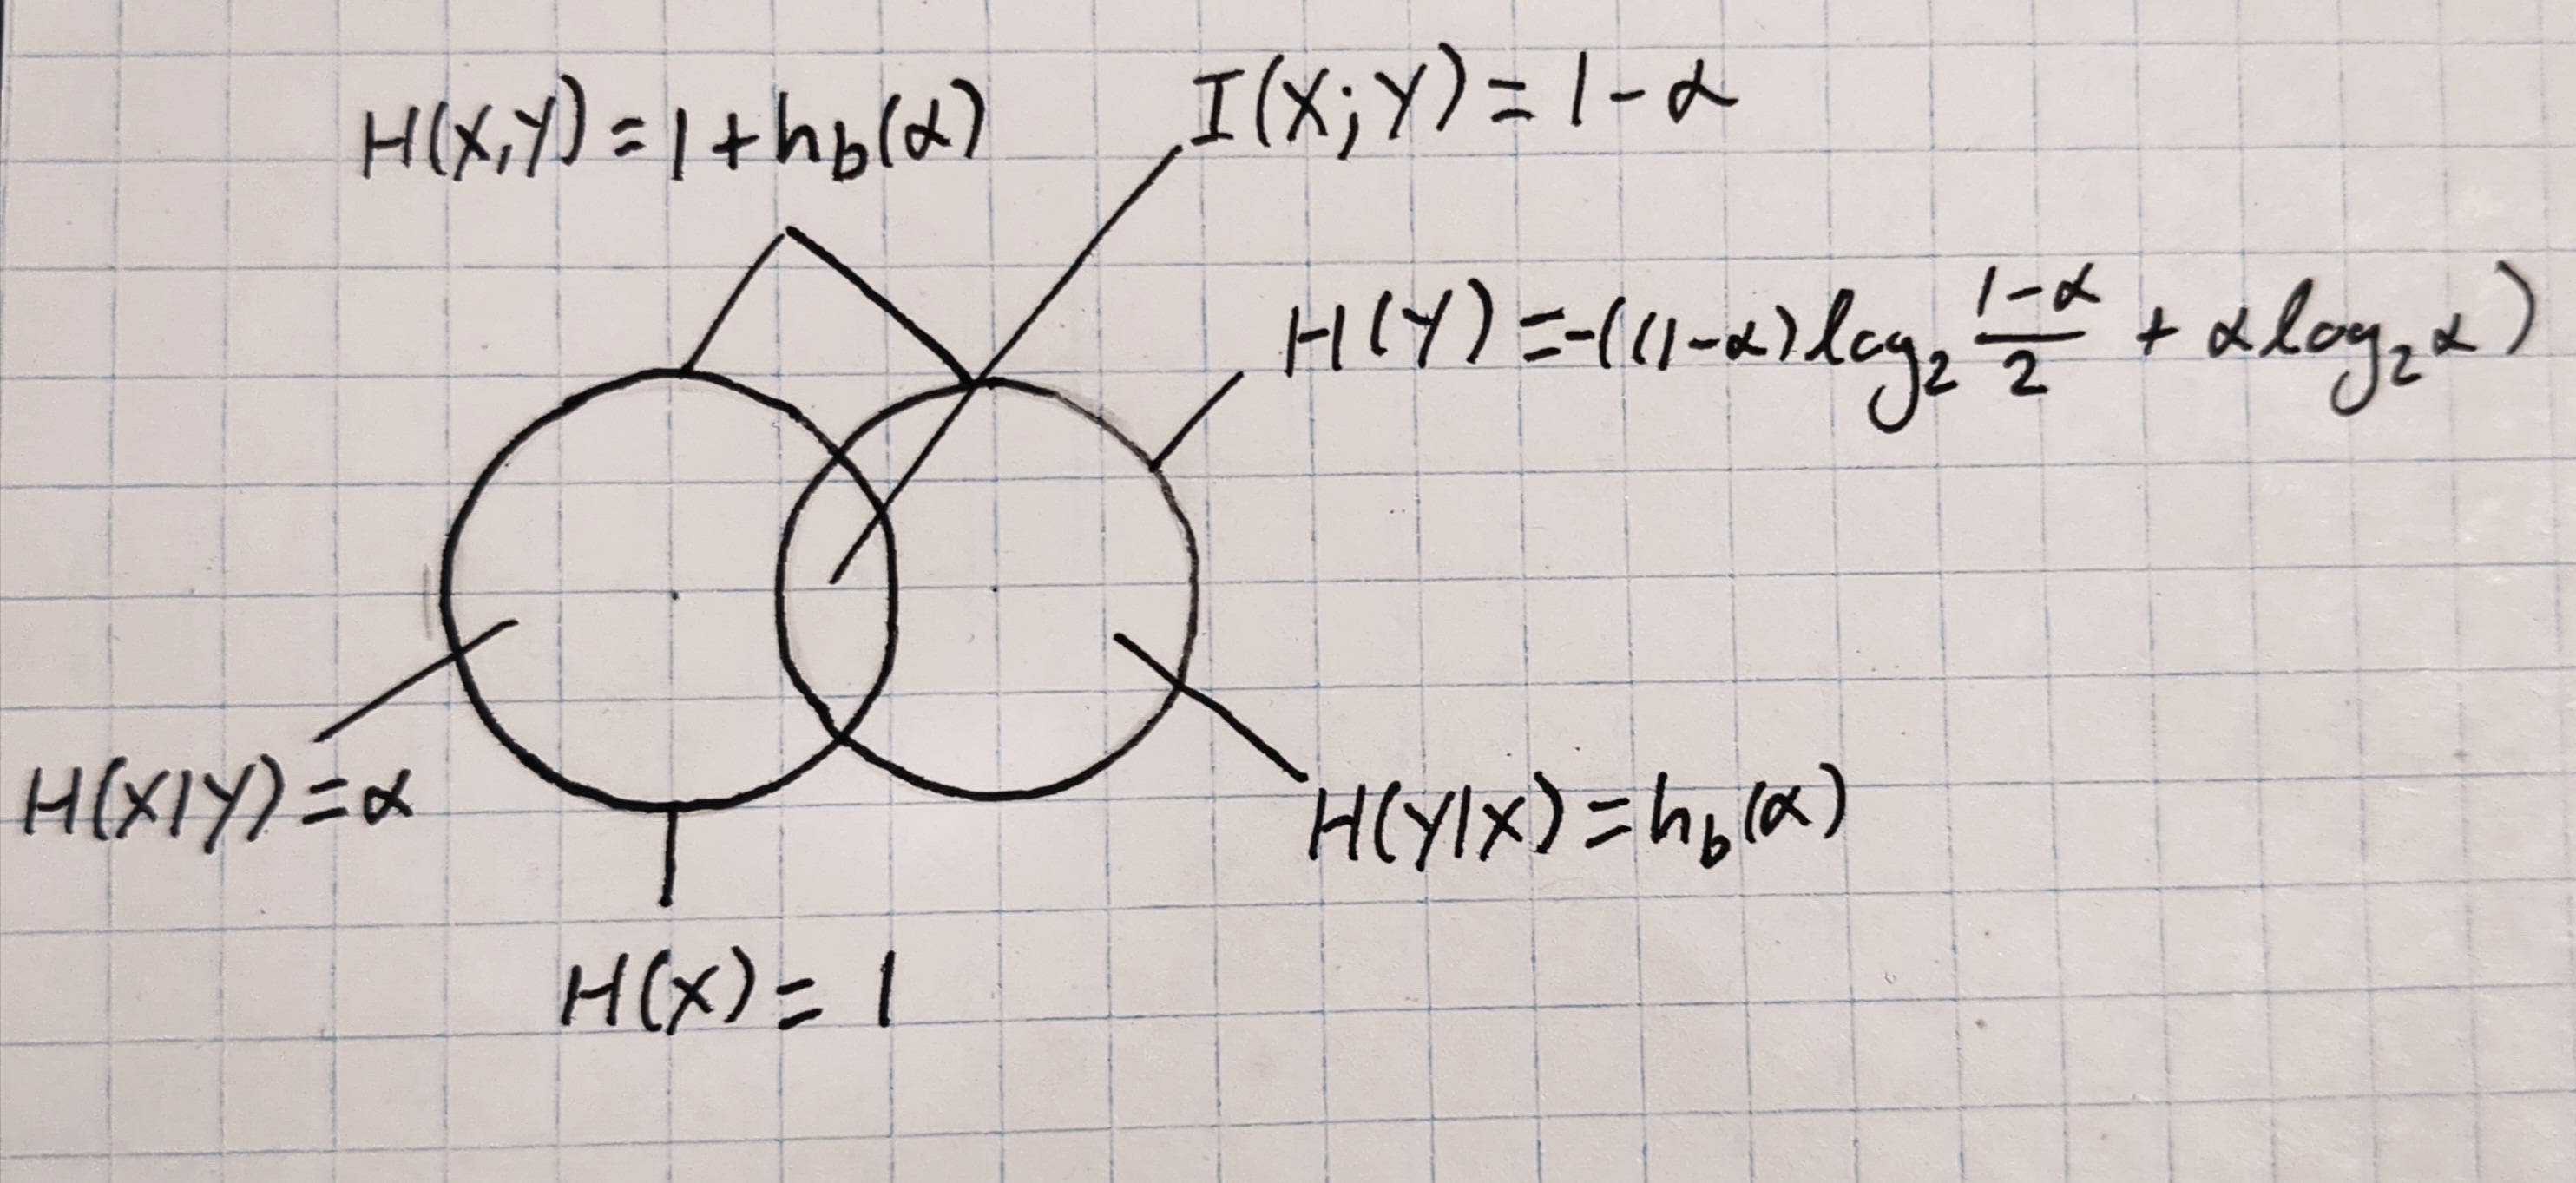 H(X,Y) = 1 + h_b(α)
I(X;Y) = 1 - α
H(Y) = -((1-α) log_2 \frac{1-α}{2} + α log_2 α)
H(X|Y) = α
H(Y|X) = h_b(α)
H(X) = 1